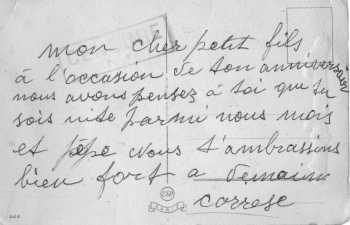 mon cher petit fils
à l'occasion de ton anniversair
nous avons pensez à toi que tu
sois vite parmi nous mois
et pépe nous t'ambrassons
bien fort a demain
correse